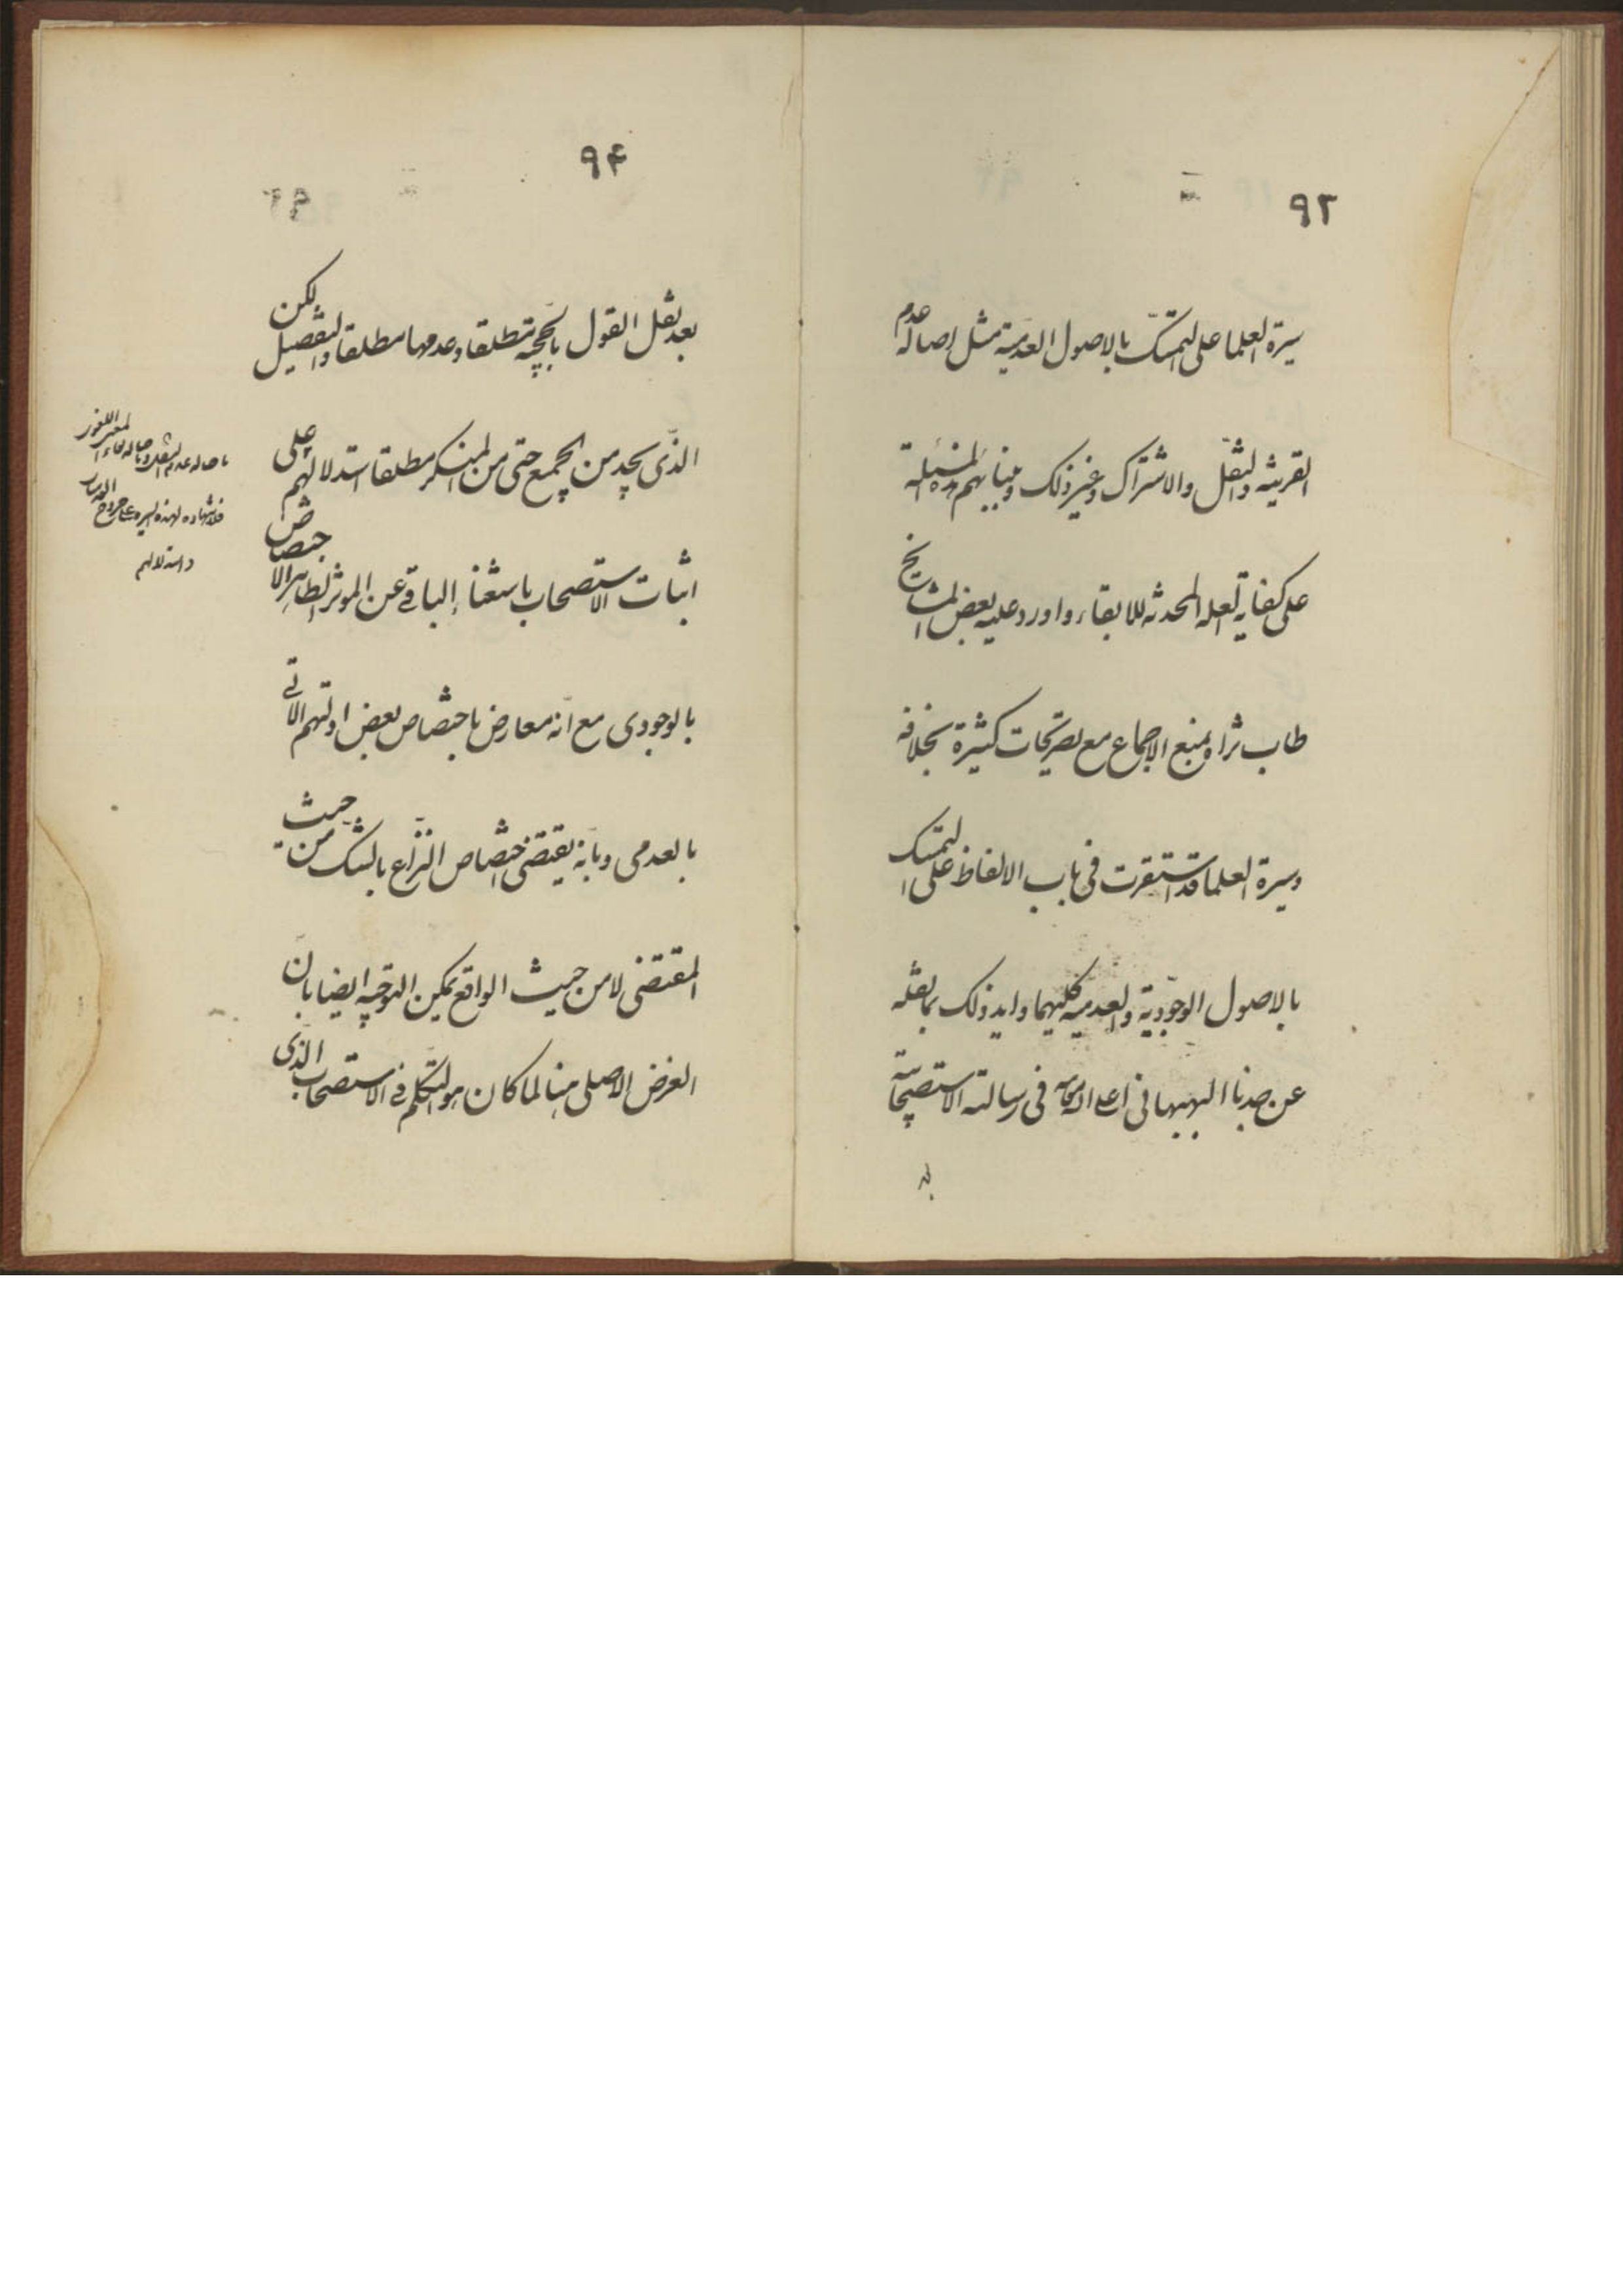 ٩٢
سيرة العلما على التمسّك بالاصول العدميّة مثل اصالة عدم
القرينه والنّقل والاشتراك وغير ذلك وبنائهم هذه المسئلة
على كفاية العله المحدثه للابقاء واورد عليه بعض المشايخ
طاب ثراه بمنع الاجماع مع تصريحات كثيرة بخلافه
وسيرة العلما قد استقرت فى باب الالفاظ على التمسك
بالاصول الوجوديّة والعدميّه كليهما وايد ذلك بما نقله
عن جدنا البهبهانى فى رسالته الاستصحابيّة
٩٤
بعد نقل القول بالحجّيّة مطلقا وعدمها مطلقا والتفصيل لكن
الذّى يجد من الجميع حتى من المنكر مطلقا استدلالهم على
اثبات الاستصحاب باستغناء الباقے عن الموثر الظاهر الاختصاص
بالوجودى مع انّه معارض باختصاص بعض ادلّتهم الاتے
بالعدمى وبانّه يقتضى اختصاص النّزاع بالشّك من حيث
المقتضى لا من حيث الواقع يمكن التوجّيه ايضا بانّ
الغرض الاصلى هنا لما كان هو التكلّم فے الاستصحاب الّذى
باصاله عدم النقل
واستدلالهم